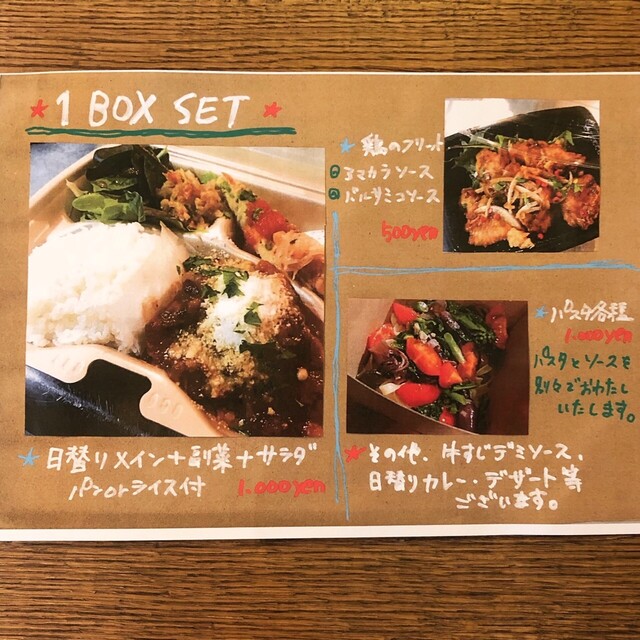 ★ 1 BOX SET ★
★ 日替りメイン+副菜+サラダ
パンorライス付 1.000yen
★ 鶏のフリット
アマカラソース
バルサミコソース
500yen
★ パスタ各種
1.000yen
パスタとソースを
別々でおわたし
いたします。
★ その他、牛すじデミソース、
日替りカレー・デザート等
ございます。